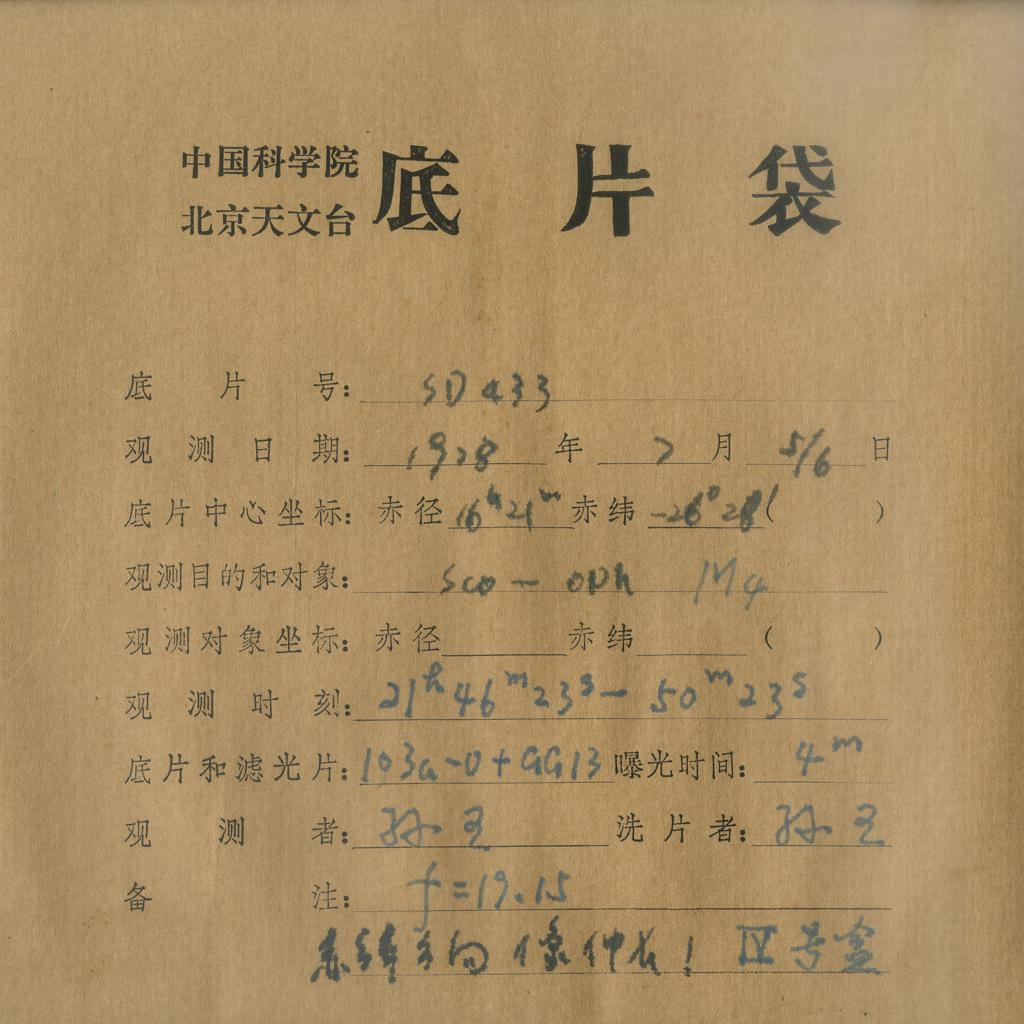 中国科学院
北京天文台
底片袋
底片号: SD433
观测日期: 1978年7月5/6日
底片中心坐标: 赤径16h21m赤纬-26°28′( )
观测目的和对象: Sco-oph M4
观测对象坐标: 赤径 赤纬 ( )
观测时刻: 21h46m23s-50m23s
底片和滤光片: 103a-O+GG13 曝光时间: 4m
观测者: 孙 王 洗片者: 孙 王
备注: f=19.15
赤纬方向像伸长! IV号盒